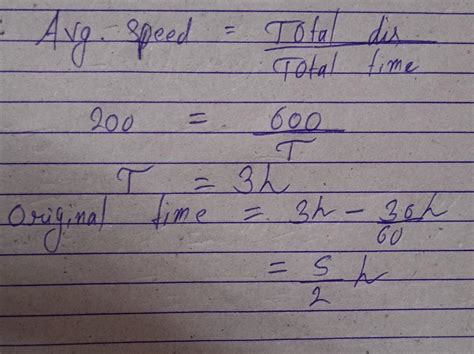 Avg. speed = Total dis / Total time
200 = 600 / T
T = 3h
Original time = 3h - 30h / 60
= 5 / 2 h